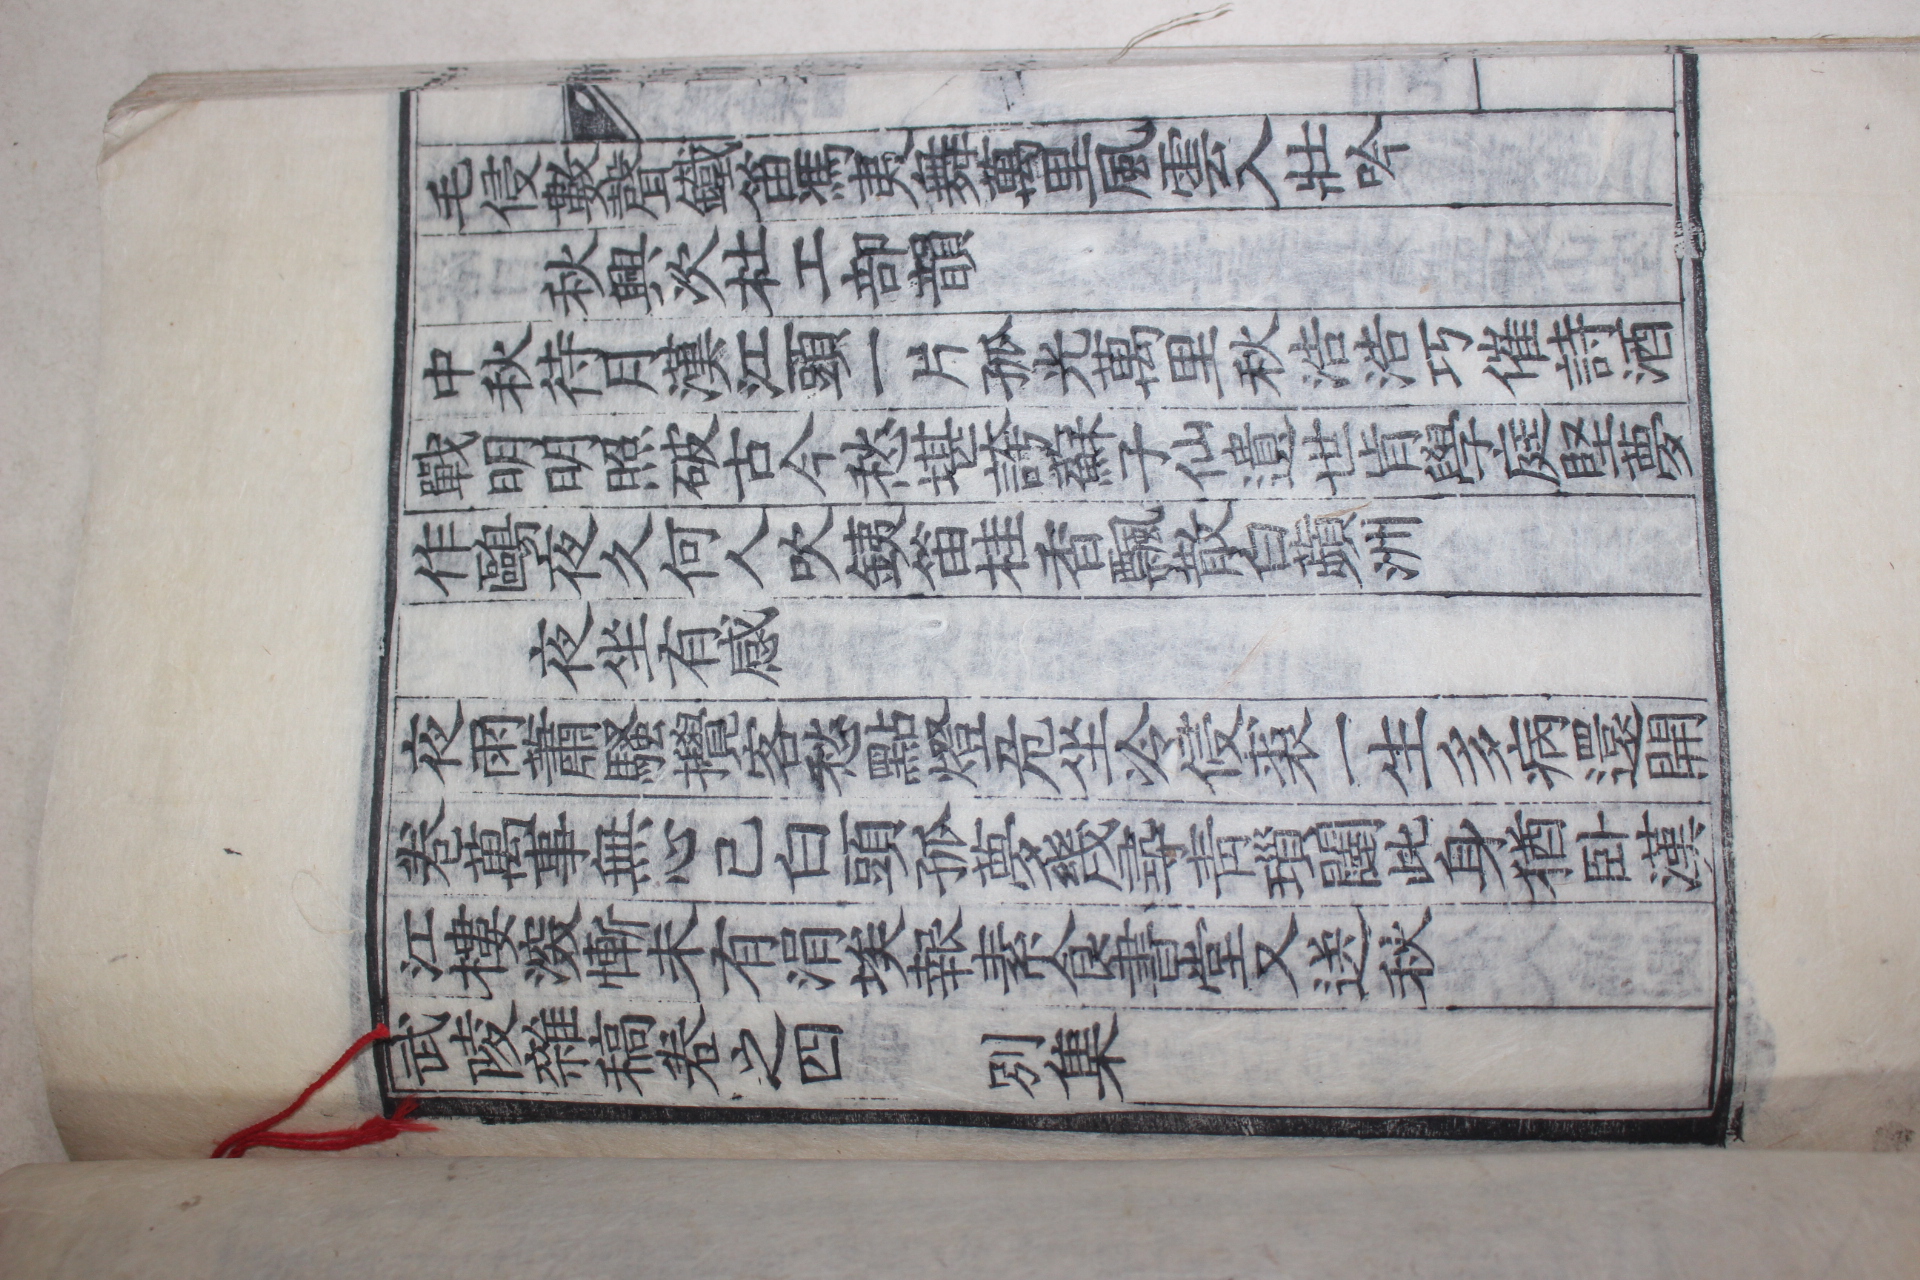 毛侵數聲鐵笛馮夷舞萬里風雲入壯吟
秋興次杜工部韻
中秋待月漢江頭一片孤光萬里秋浩浩巧催詩酒
戰明明照破古今愁堪誇蘇子仙遺世肯學庭堅夢
作鷗夜久何人吹銕笛桂香飄散白蘋洲
夜坐有感
夜雨蕭騷攪客愁點燈危坐冷侵裘一生多病還開
卷萬事無心已白頭孤夢幾尋青瑣闥此身猶卧漢
江樓深慚未有涓埃報素食書堂又送秋
武陵雜稿卷之四 別集